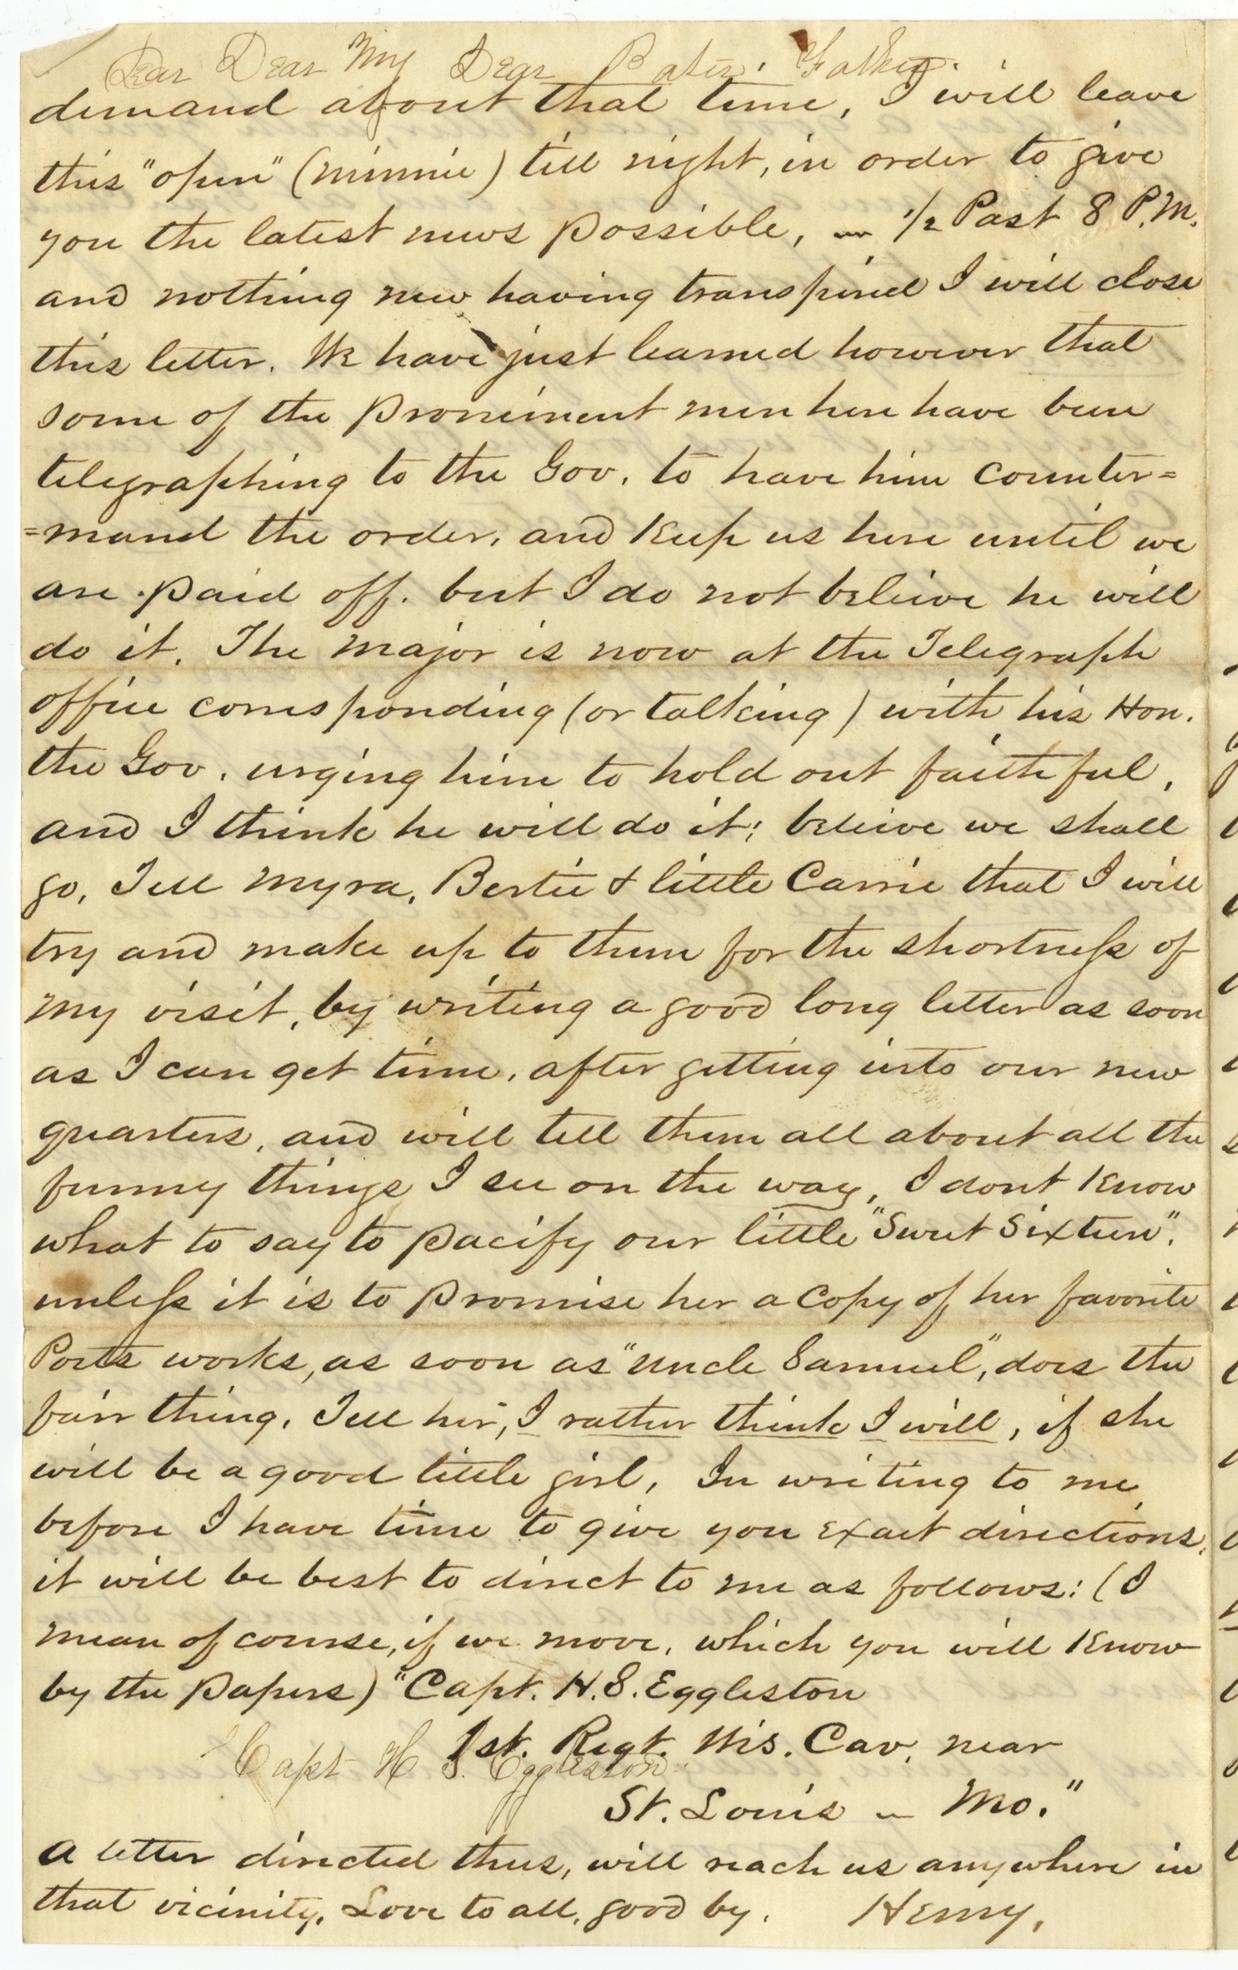 Dear Dear My Dear Pater. Father.
demand about that time, I will leave
this "open" (minnie) till night, in order to give
you the latest news possible, — 1/2 Past 8 P.M.
and nothing new having transpired I will close
this letter. We have just learned however that
some of the prominent men here have been
telegraphing to the Gov. to have him counter=
=mand the order, and keep us here until we
are paid off. but I do not believe he will
do it. The Major is now at the Telegraph
office corresponding (or talking) with his Hon.
the Gov. urging him to hold out faithful,
and I think he will do it; believe we shall
go. Tell Myra, Bertie & little Carrie that I will
try and make up to them for the shortness of
my visit, by writing a good long letter as soon
as I can get time, after getting into our new
quarters, and will tell them all about all the
funny things I see on the way, I dont know
what to say to pacify our little "Sweet Sixteen".
unless it is to promise her a copy of her favorite
Poets works, as soon as "Uncle Samuel", does the
fair thing. Tell her, I rather think I will, if she
will be a good little girl, In writing to me
before I have time to give you exact directions,
it will be best to direct to me as follows: (I
mean of course, if we move, which you will know
by the papers) "Capt. H. S. Eggleston
1st. Regt. Wis. Cav. near
Capt H. S. Eggleston
St. Louis — Mo."
A letter directed thus, will reach us anywhere in
that vicinity. Love to all, good by. Henry.